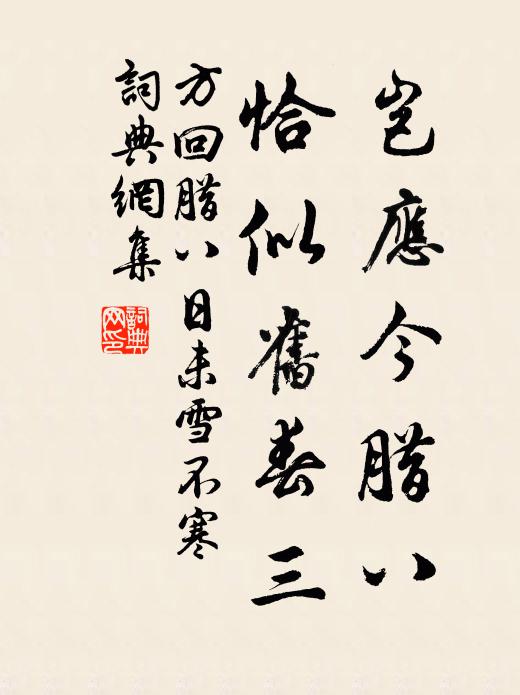 岂應今腊八
恰似舊春三
方回腊八日未雪不寒
詞典網集
詞典网印